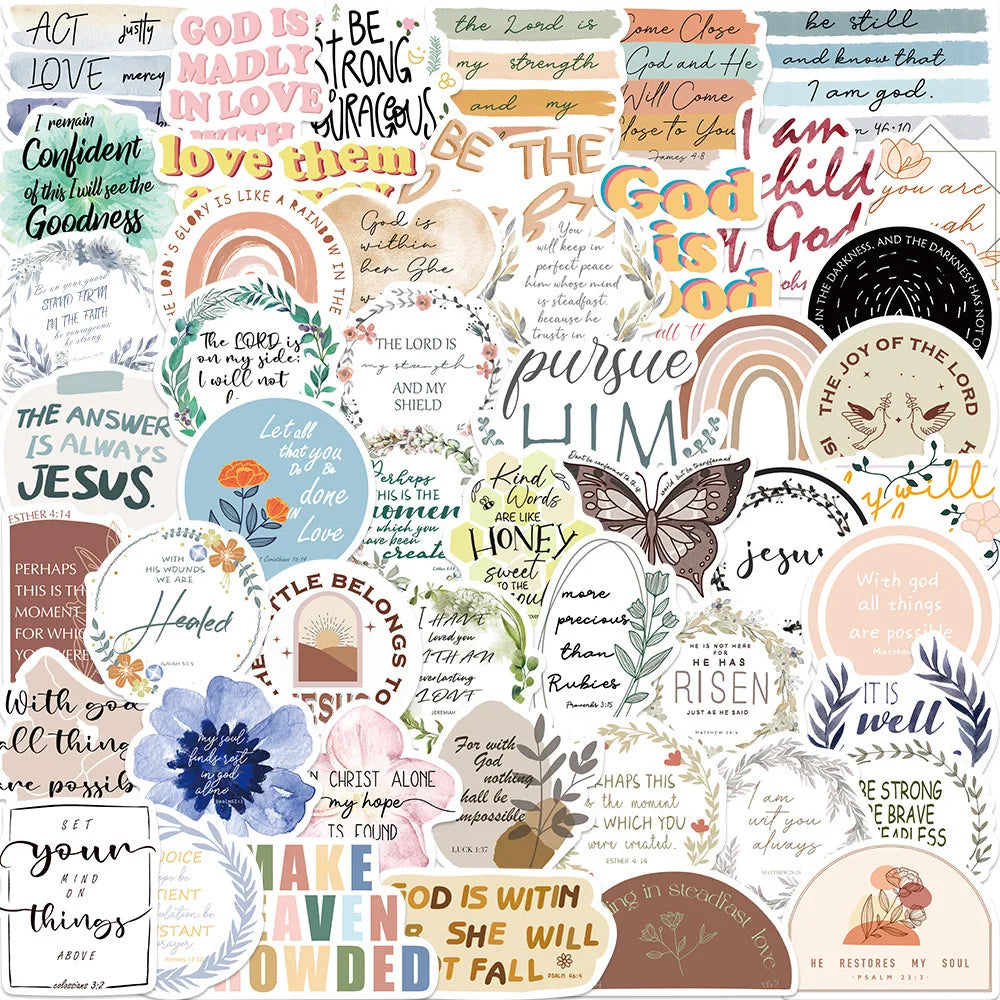 ACT justly
LOVE mercy
GOD IS
MADLY
IN LOVE
WITH
BE
STRONG
COURAGEOUS
the Lord is
my strength
and my
Come Close
God and He
Will Come
Close to You
James 4:8
be still
and know that
I am god.
46:10
I remain
Confident
of this I will see the
Goodness
love them
BE THE
God
is
good
I am
child
of God
you are
LORD'S GLORY IS LIKE A RAINBOW IN THE
God is
within
her She
You
will keep in
perfect peace
him whose mind
is steadfast,
because he
trusts in
IN THE DARKNESS, AND THE DARKNESS HAS NOT
Be on your guard
STAND FIRM
IN THE FAITH
be courageous
be strong
The LORD is
on my side:
I will not
THE LORD IS
my strength
AND MY
SHIELD
pursue
HIM
THE JOY OF THE LORD
IS
THE ANSWER
IS ALWAYS
JESUS.
Let all
that you
Do Be
done
IN
Love
1 Corinthians 16:14
Perhaps
THIS IS THE
moment
for which you
have been
created
Kind
Words
ARE LIKE
HONEY
sweet
TO THE
soul
Don't be conformed to this world but be transformed
jesus
will
ESTHER 4:14
PERHAPS
THIS IS THE
MOMENT
FOR WHICH
YOU WERE
WITH
HIS WOUNDS
WE ARE
Healed
ISAIAH 53:5
THE BATTLE BELONGS TO
JESUS
I HAVE
loved you
WITH AN
everlasting
LOVE
JEREMIAH
more
precious
than
Rubies
Proverbs 3:15
HE IS NOT HERE
FOR
HE HAS
RISEN
JUST AS HE SAID
MATTHEW 28:6
With god
all things
are possible
Matthew
With god
all things
are possible
my soul
finds rest
in god
alone
Psalm62:1
IN CHRIST ALONE
my hope
IS FOUND
For with
God
nothing
shall be
impossible
LUCK 1:37
PERHAPS THIS
IS the moment
FOR WHICH YOU
were created.
ESTHER 4:14
I am
wit you
always
MATTHEW 28:20
IT IS
well
BE STRONG
BE BRAVE
FEARLESS
SET
your
MIND
ON
things
ABOVE
colossians 3:2
REJOICE
hope be
PATIENT
tribulation be
CONSTANT
prayer
Romans 12:12
MAKE
HEAVEN
CROWDED
GOD IS WITIN
HER SHE WILL
NOT FALL
PSALM 46:5
in steadfast love
HE RESTORES MY SOUL
·PSALM 23:3·